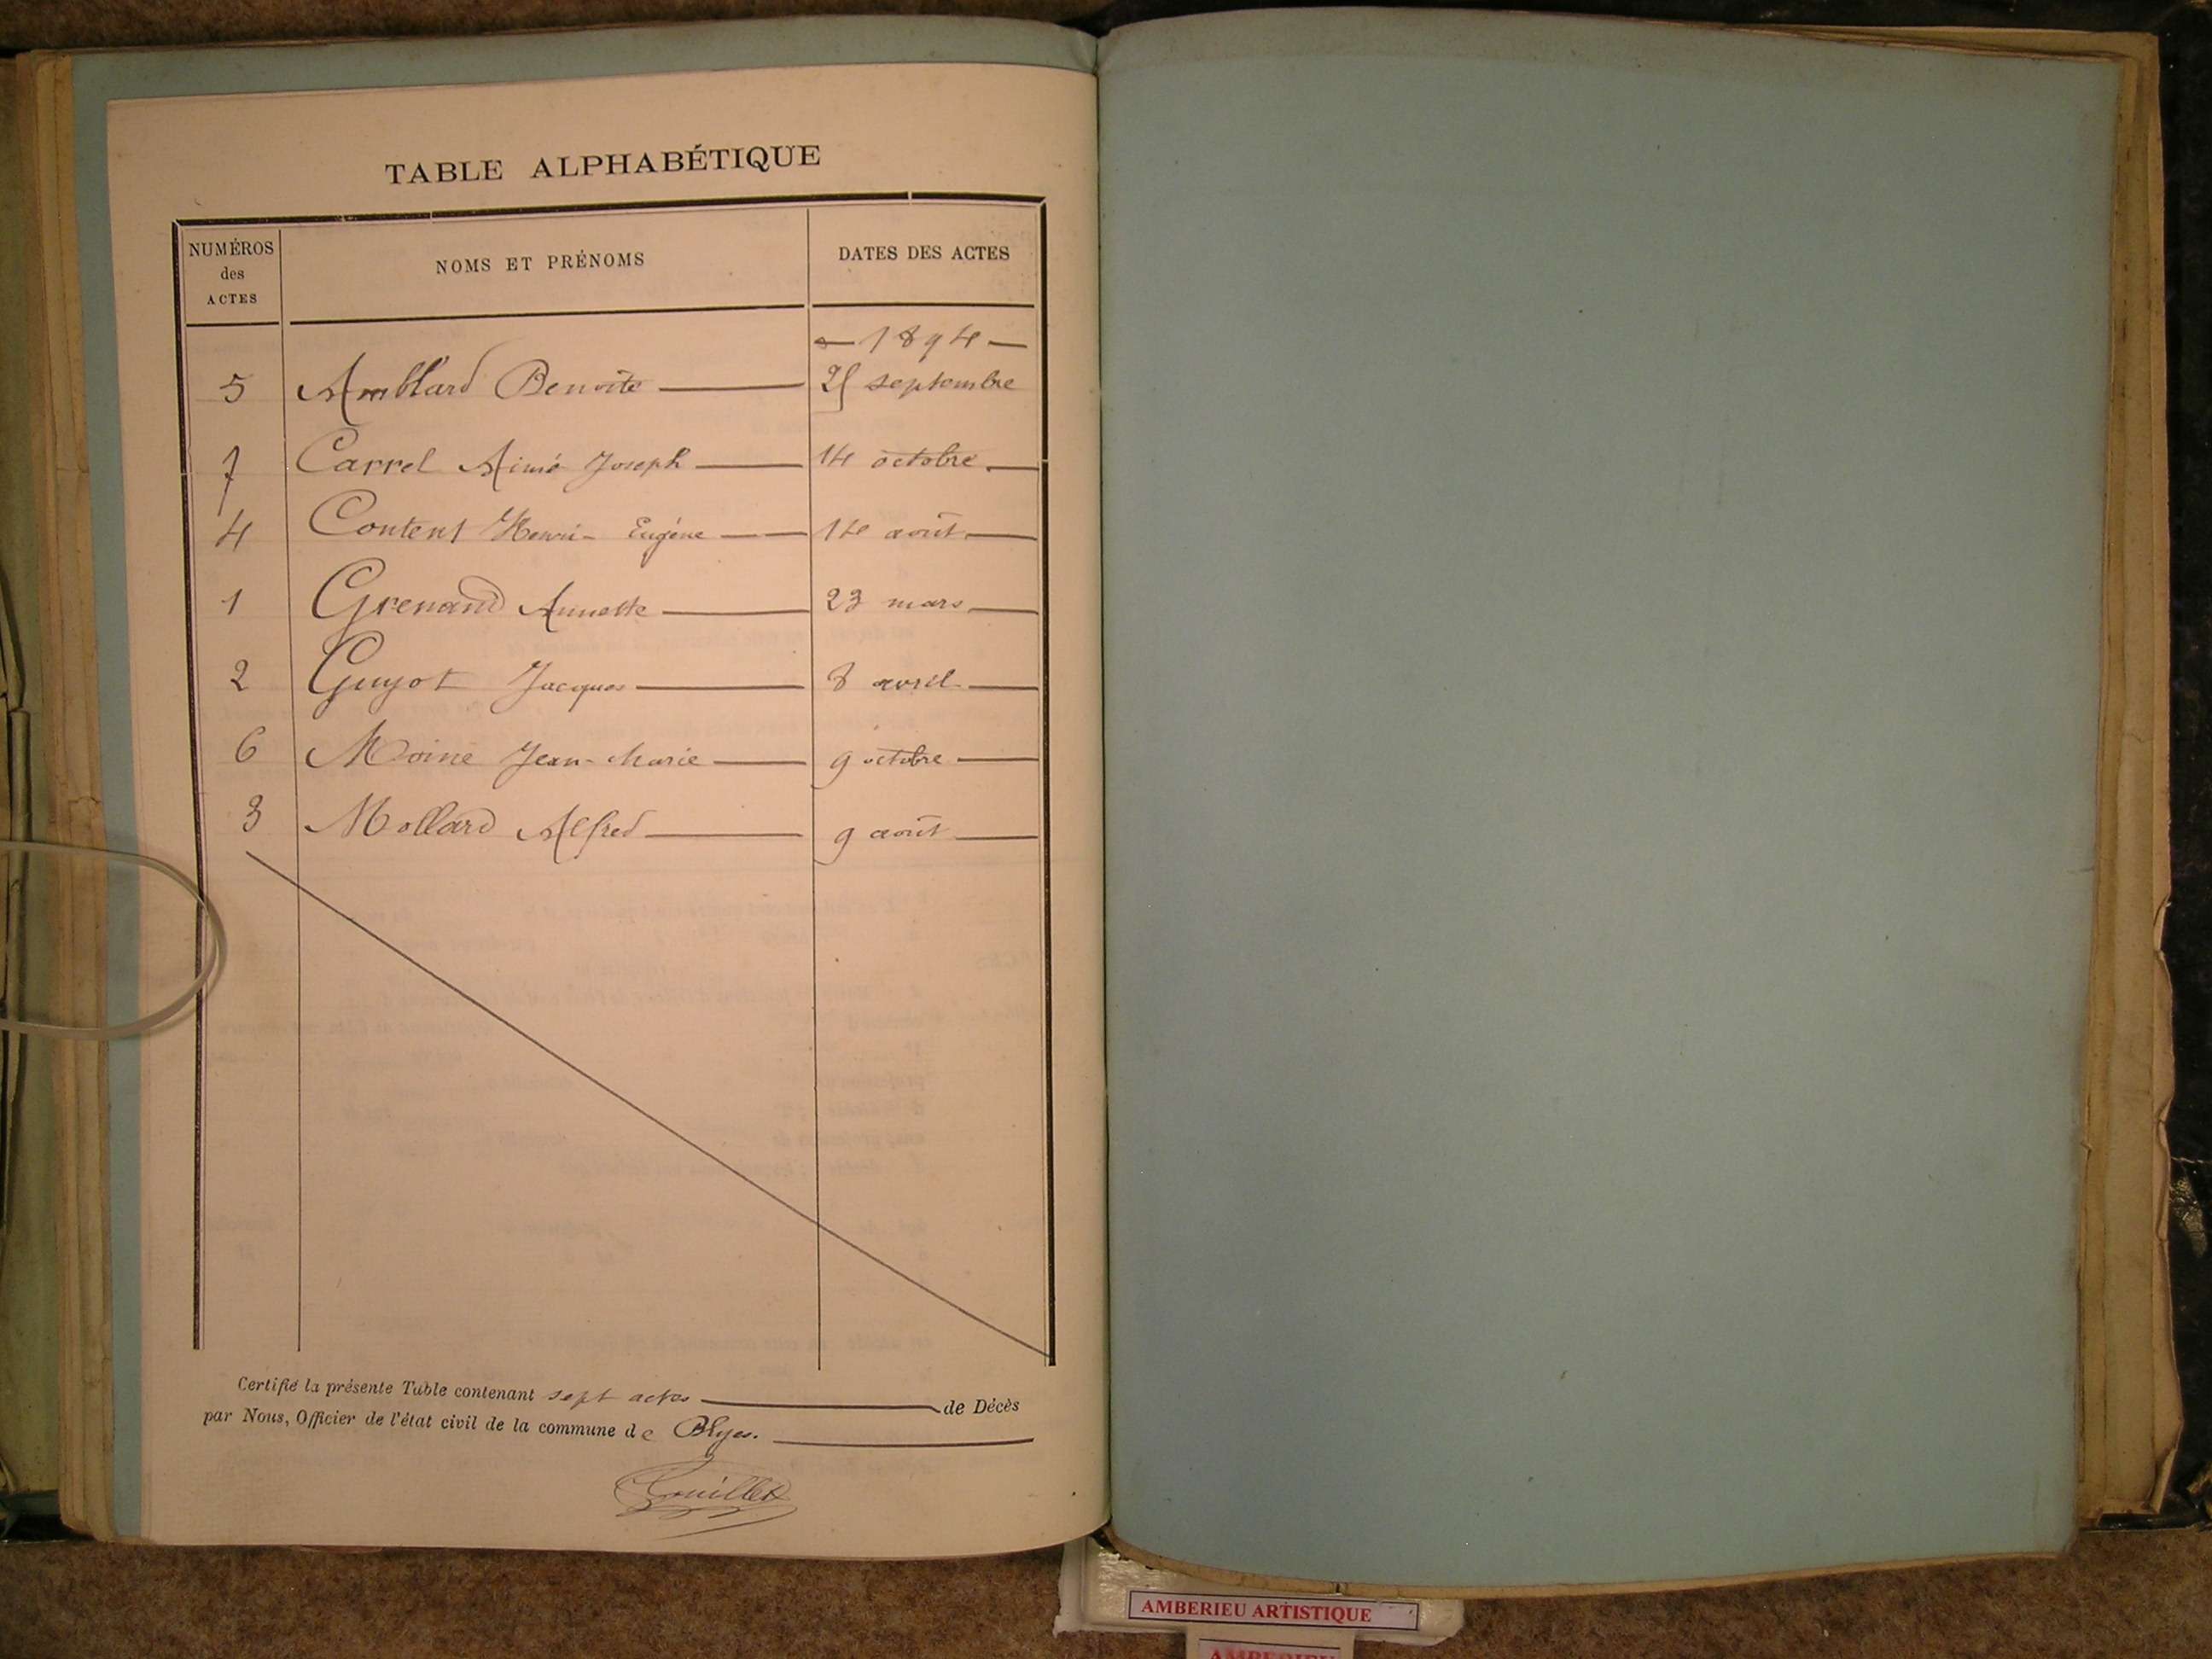 TABLE ALPHABÉTIQUE
NUMÉROS des ACTES NOMS ET PRÉNOMS DATES DES ACTES
1894
5 Amblard Benoite 25 septembre
7 Carrel Aimé Joseph 14 octobre
4 Content Henri-Eugène 14 août
1 Grenand Annette 23 mars
2 Guyot Jacques 8 avril
6 Moine Jean-Marie 9 octobre
3 Mollard Alfred 9 août
Certifié la présente Table contenant sept actes de Décès
par Nous, Officier de l'état civil de la commune de Blyes.
AMBERIEU ARTISTIQUE